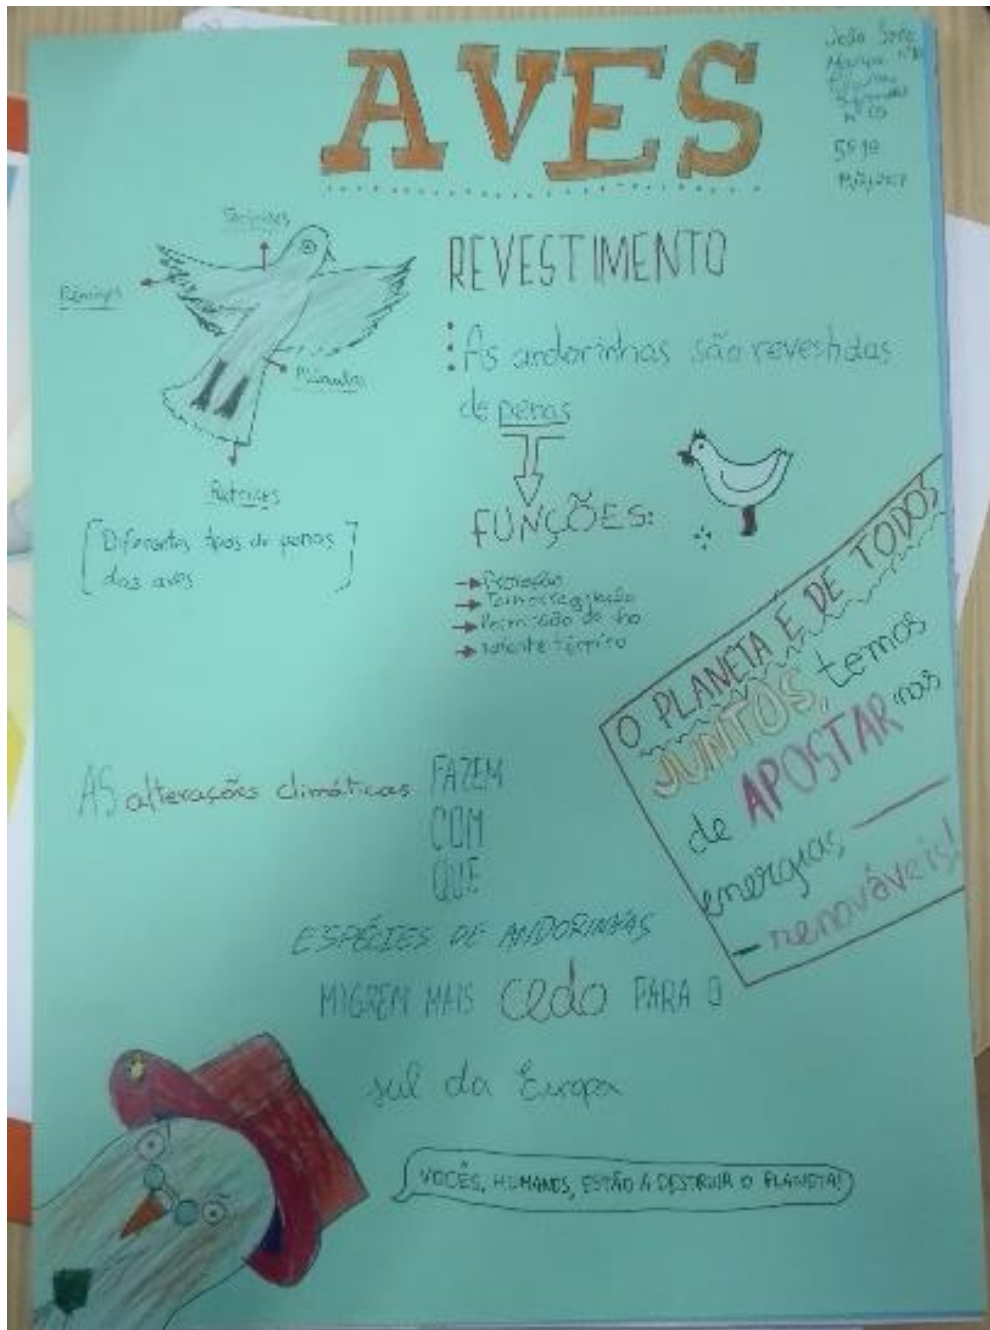 AVES
João
nº
5º 1ª
Rémiges
Plúmulas
Retrizes
[Diferentes tipos de penas
das aves]
REVESTIMENTO
As andorinhas são revestidas
de penas
FUNÇÕES:
→ Proteção
→ Termorregulação
→
→ térmico
O PLANETA É DE TODOS
JUNTOS, temos
de APOSTAR nas
energias
renováveis!
AS alterações climáticas FAZEM
COM
QUE
ESPÉCIES DE ANDORINHAS
MIGREM MAIS cedo PARA O
sul da Europa
VOCÊS, HUMANOS, ESTÃO A DESTRUIR O PLANETA!